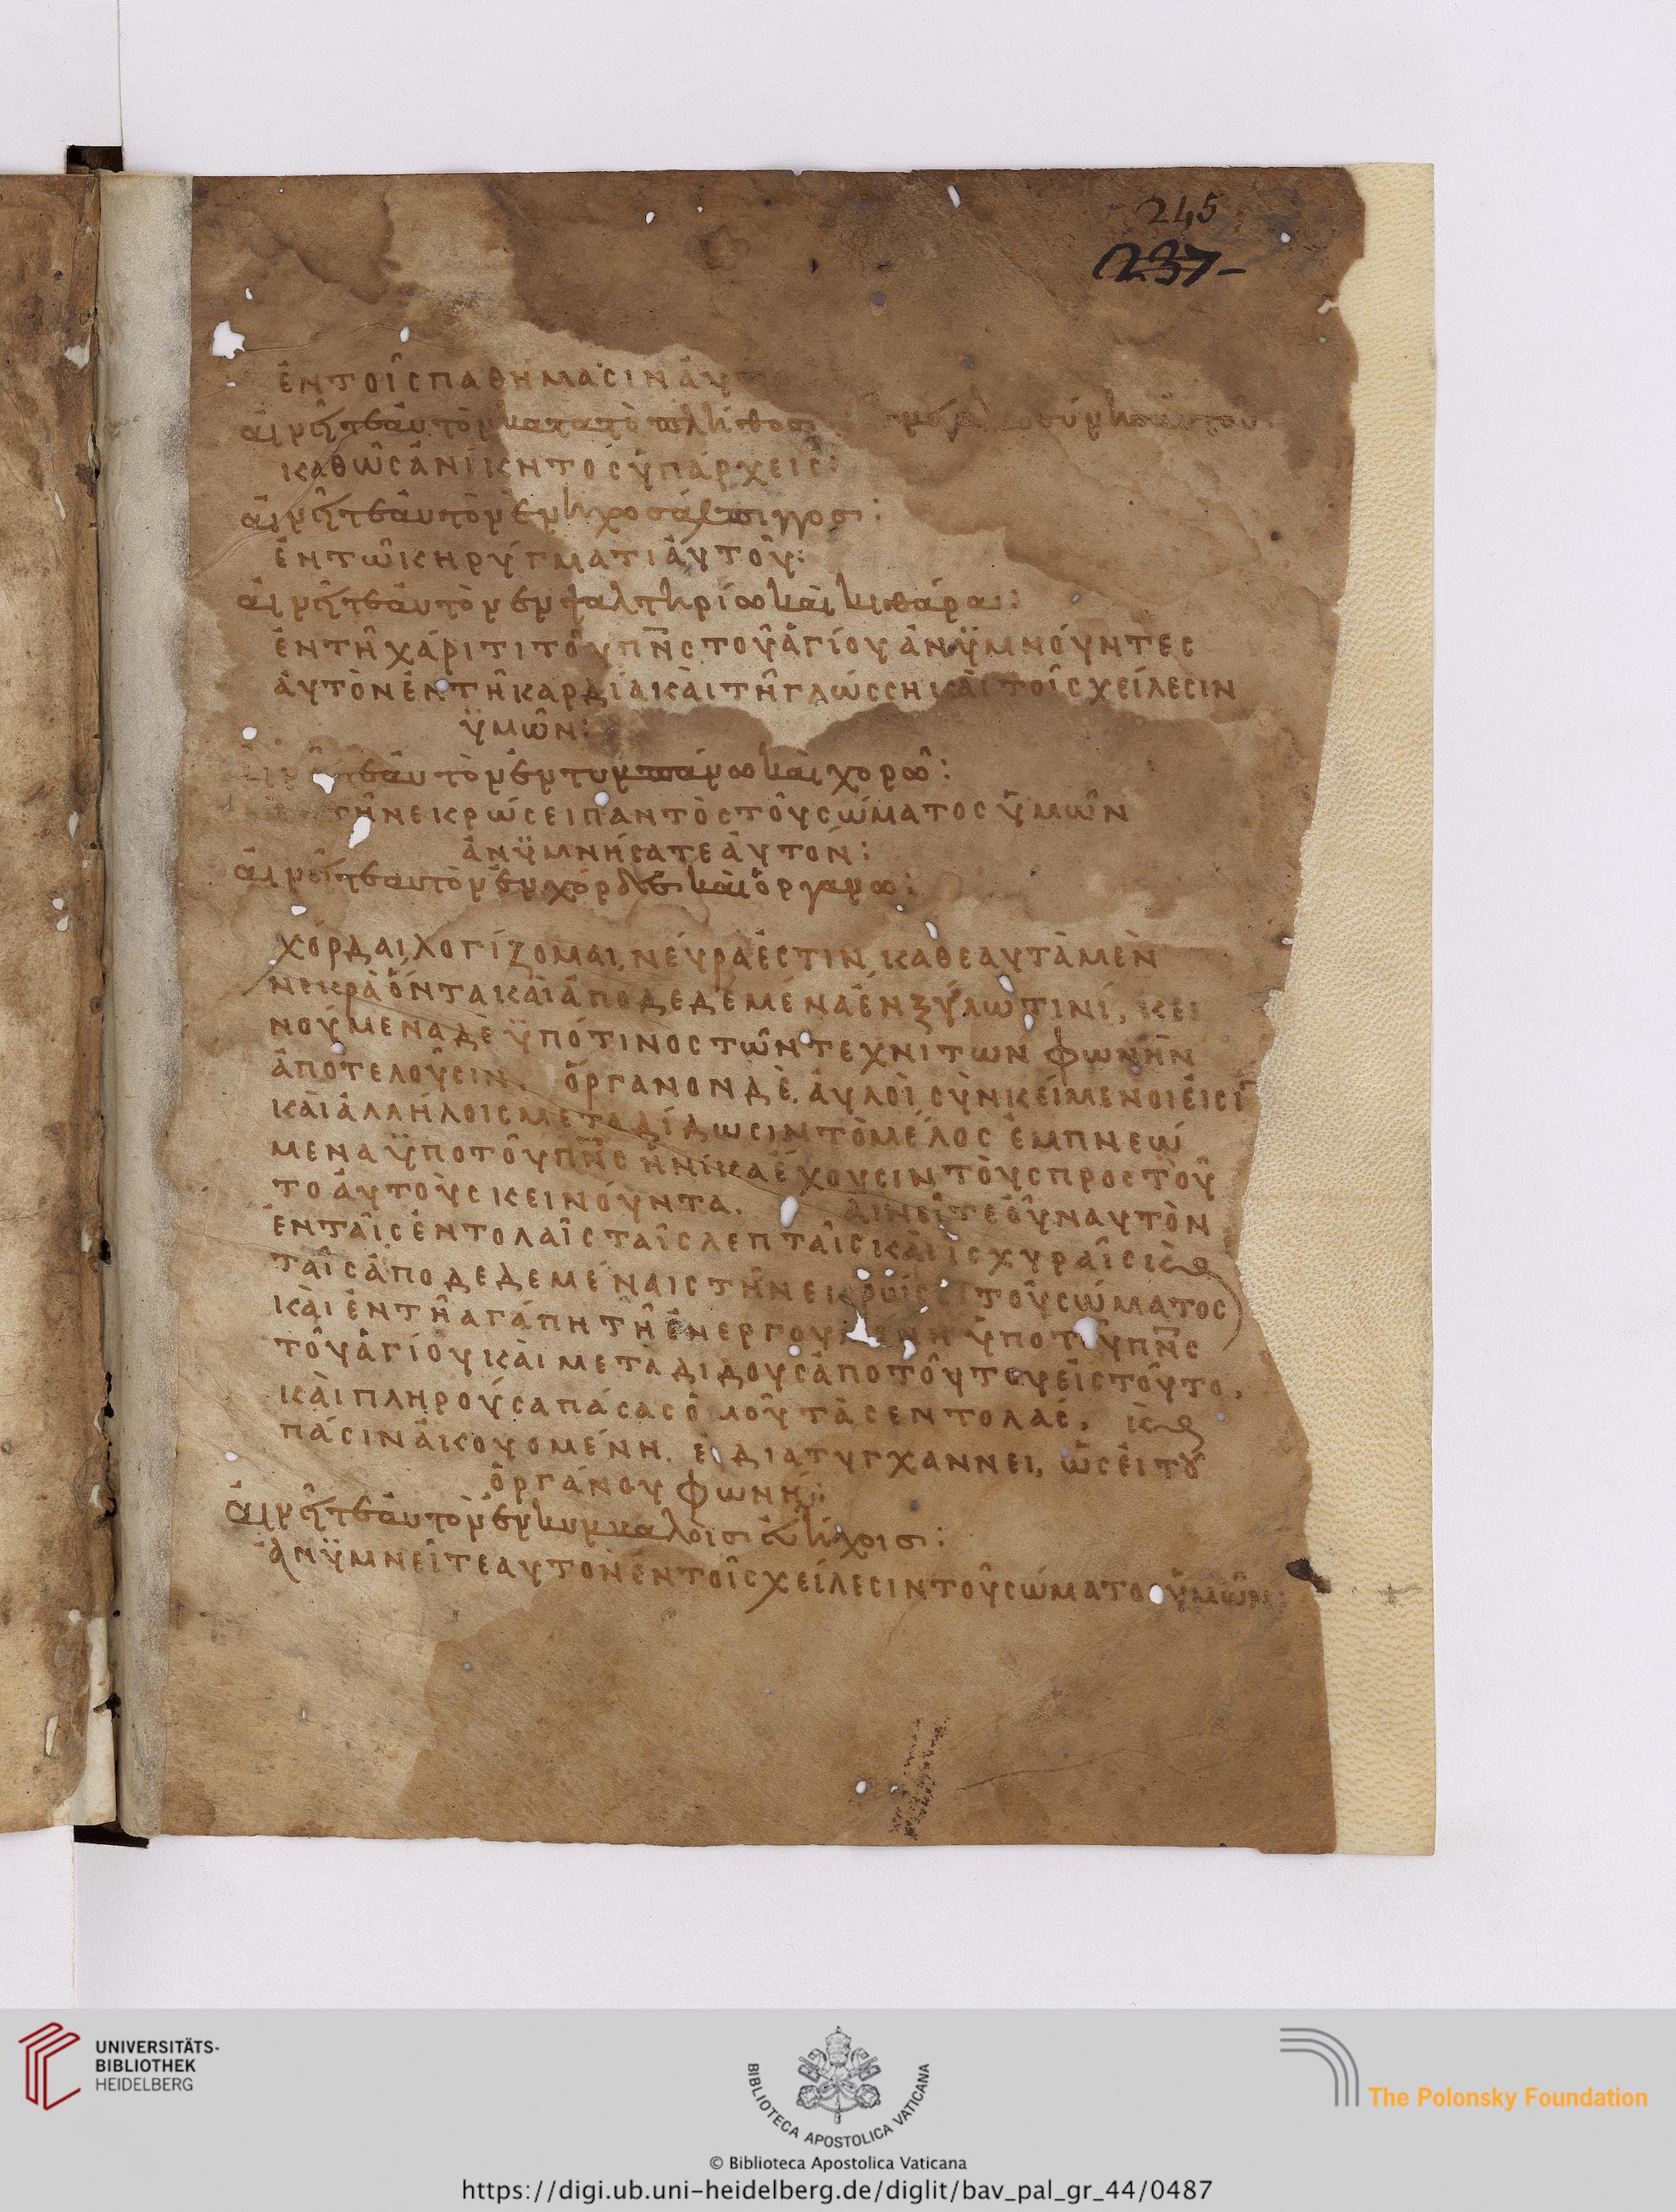 245
237-
ἐν τοῖς παθήμασιν αὐ
αἰνεῖτε αὐτὸν κατὰ τὸ πλῆθος
καθὼς ἀνίκητος ὑπάρχεις:
αἰνεῖτε αὐτὸν ἐν ἠχο σάλπιγγος:
ἐν τῶ κηρύγματι αὐτοῦ:
αἰνεῖτε αὐτὸν ἐν ψαλτηρίω καὶ κιθάρα:
ἐν τῆ χάριτι τοῦ πνς τοῦ ἁγίου ἀνϋμνοῦντες
αὐτὸν ἐν τῆ καρδία καὶ τῆ γλώσση καὶ τοῖς χείλεσιν
ϋμῶν:
αὐτὸν ἐν τυμπάνω καὶ χορῶ:
τῆ νεκρώσει παντὸς τοῦ σώματος ὑμῶν
ἀνϋμνήσατε αὐτόν:
αἰνεῖτε αὐτὸν ἐν χόρδες καὶ ὀργανω:
χόρδαι λογίζομαι, νεύρα ἐστιν, καθεαυτὰ μὲν
νεκρὰ ὄντα καὶ ἀποδεδεμένα ἐν ξύλω τινί, κει
νούμενα δὲ ϋπό τινος τῶν τεχνιτων φωνὴν
ἀποτελοῦσιν. ὄργανον δὲ, ἀυλοὶ σὺνκείμενοι εἰσὶ
καὶ ἀλλήλοις μεταδίδωσιν τὸ μέλος ἐμπνεώ
μενα ϋπο τοῦ πνς ἡνίκα ἔχουσιν τοὺς προς τοῦ
το αὐτοὺς κεινοῦντα. αἰνεῖτε οὖν αυτὸν
ἐν ταῖς ἐντολαῖς ταῖς λεπταῖς καὶ ἰσχυραῖς κὲ
ταῖς ἀποδεδεμέναις τῆ νεκρώσει τοῦ σώματος
καὶ ἐν τῆ αγάπη τῆ ἐνεργουμένη ὑπο τοῦ πνς
τοῦ ἁγίου καὶ μεταδιδοὺς ἀπο τοῦτου εἰς τοῦτο,
καὶ πληρούσα πάσας ὁμοῦ τὰς εντολάς, κὲ
πάσιν ἀκουομένη. εἰ διατυγχαννει, ὡσεὶ του
ὀργάνου φωνή:
αἰνεῖτε αὐτὸν ἐν κυμβαλοις εὐήχοις:
ἀνϋμνεῖτε αυτον ἐν τοῖς χείλεσιν τοῦ σώματο ὑμῶν:
UNIVERSITÄTS-
BIBLIOTHEK
HEIDELBERG
BIBLIOTECA APOSTOLICA VATICANA
The Polonsky Foundation
© Biblioteca Apostolica Vaticana
https://digi.ub.uni-heidelberg.de/diglit/bav_pal_gr_44/0487